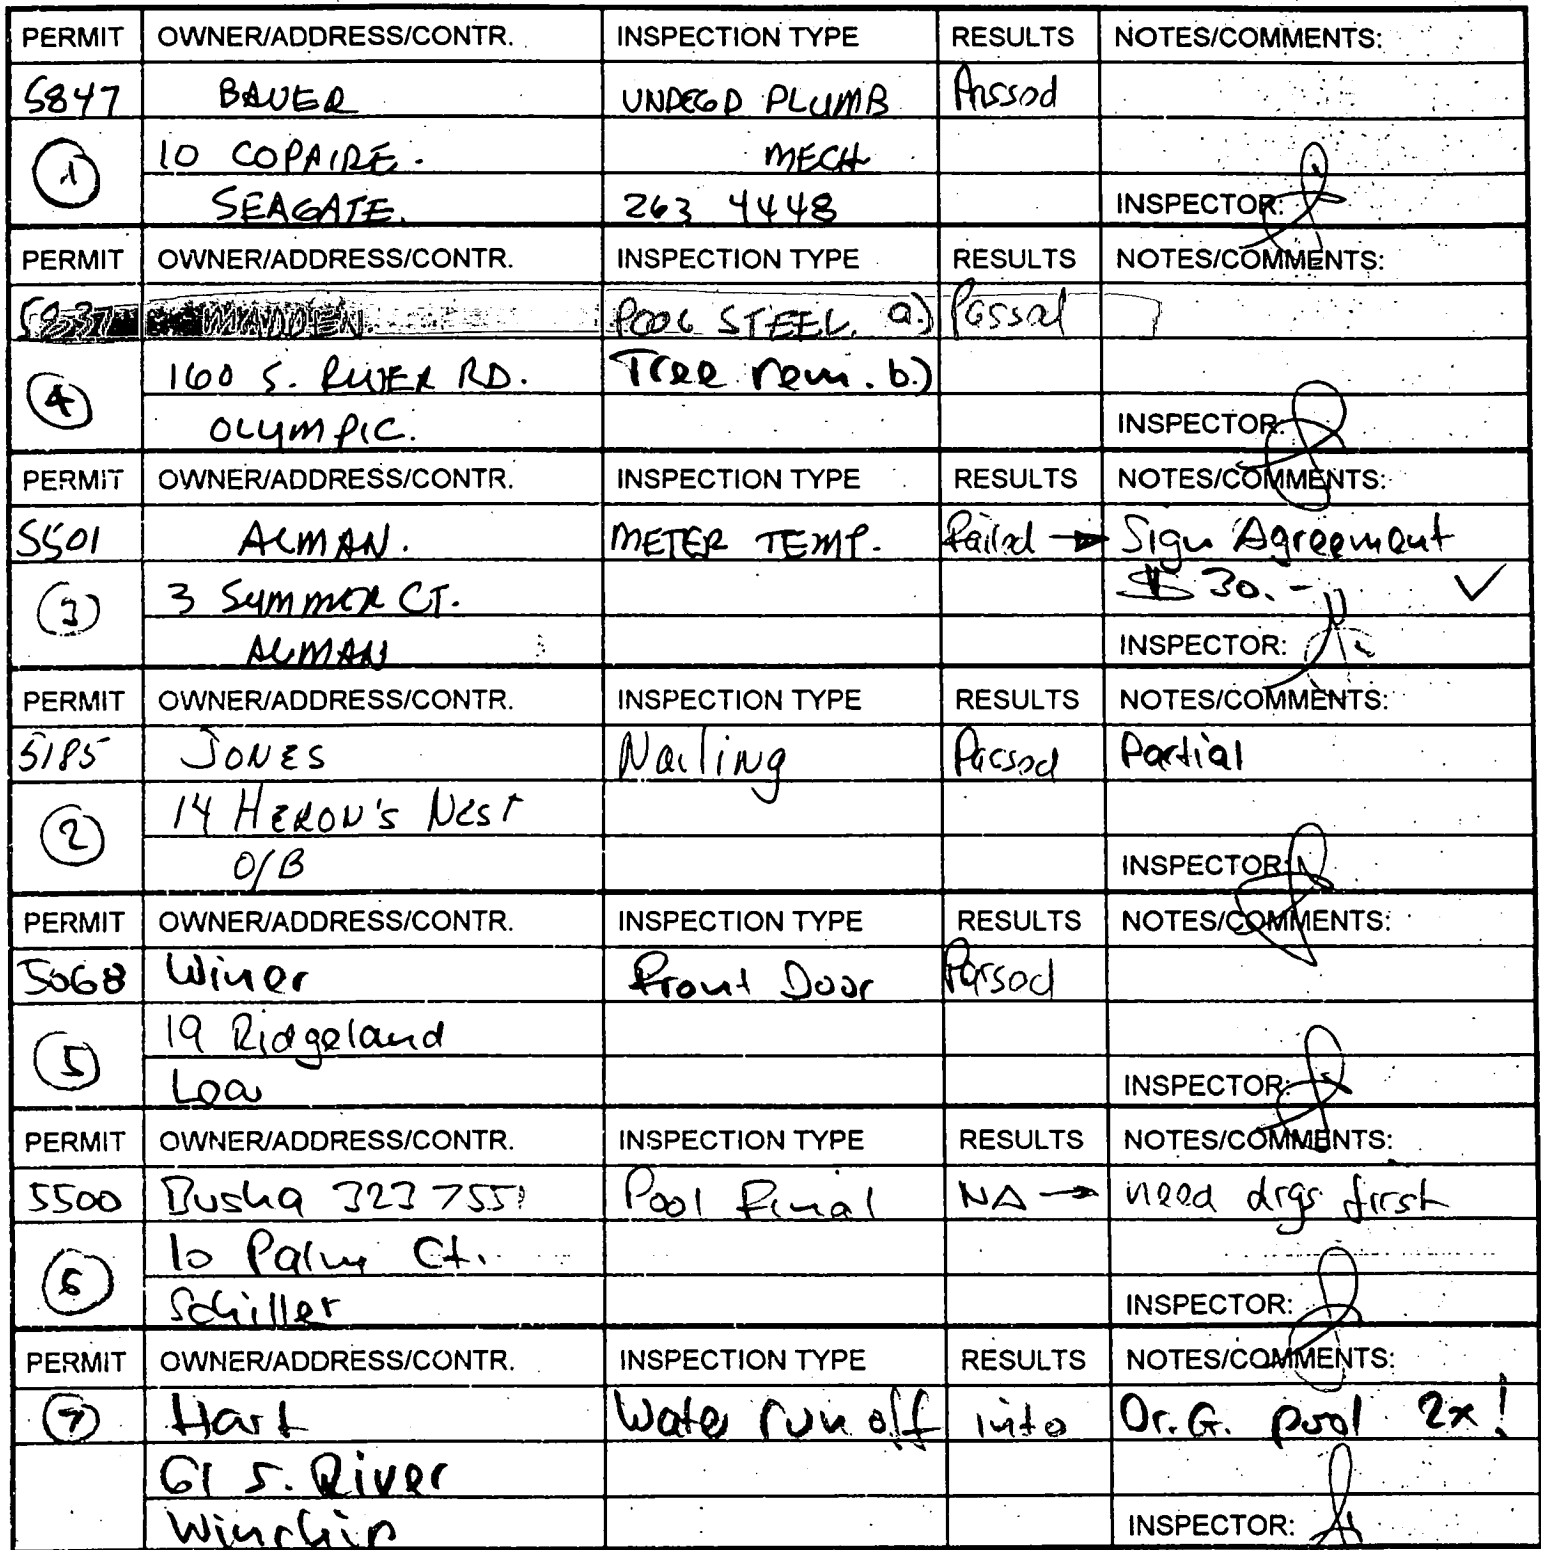 PERMIT OWNER/ADDRESS/CONTR. INSPECTION TYPE RESULTS NOTES/COMMENTS:
5847 BAUER UNDEGD PLUMB Passed
1 10 COPAIRE. MECH
SEAGATE. 263 4448 INSPECTOR:
PERMIT OWNER/ADDRESS/CONTR. INSPECTION TYPE RESULTS NOTES/COMMENTS:
5837 MADDEN. POOL STEEL. a.) Passed
4 160 S. RIVER RD. Tree rem. b.)
OLYMPIC. INSPECTOR:
PERMIT OWNER/ADDRESS/CONTR. INSPECTION TYPE RESULTS NOTES/COMMENTS:
5501 ALMAN. METER TEMP. Failed → Sign Agreement
3 3 SUMMER CT. $ 30.- ✓
ALMAN INSPECTOR:
PERMIT OWNER/ADDRESS/CONTR. INSPECTION TYPE RESULTS NOTES/COMMENTS:
5185 JONES Nailing Passed Partial
2 14 HERON'S NEST
O/B INSPECTOR:
PERMIT OWNER/ADDRESS/CONTR. INSPECTION TYPE RESULTS NOTES/COMMENTS:
5068 Winer Front Door Passed
5 19 Ridgeland
INSPECTOR:
PERMIT OWNER/ADDRESS/CONTR. INSPECTION TYPE RESULTS NOTES/COMMENTS:
5500 Busha 323 755 Pool Final NA → need drgs first
6 10 Palm Ct.
Schiller INSPECTOR:
PERMIT OWNER/ADDRESS/CONTR. INSPECTION TYPE RESULTS NOTES/COMMENTS:
7 Hart Water run off into Dr. G. pool 2x!
61 S. River
Winchip INSPECTOR: